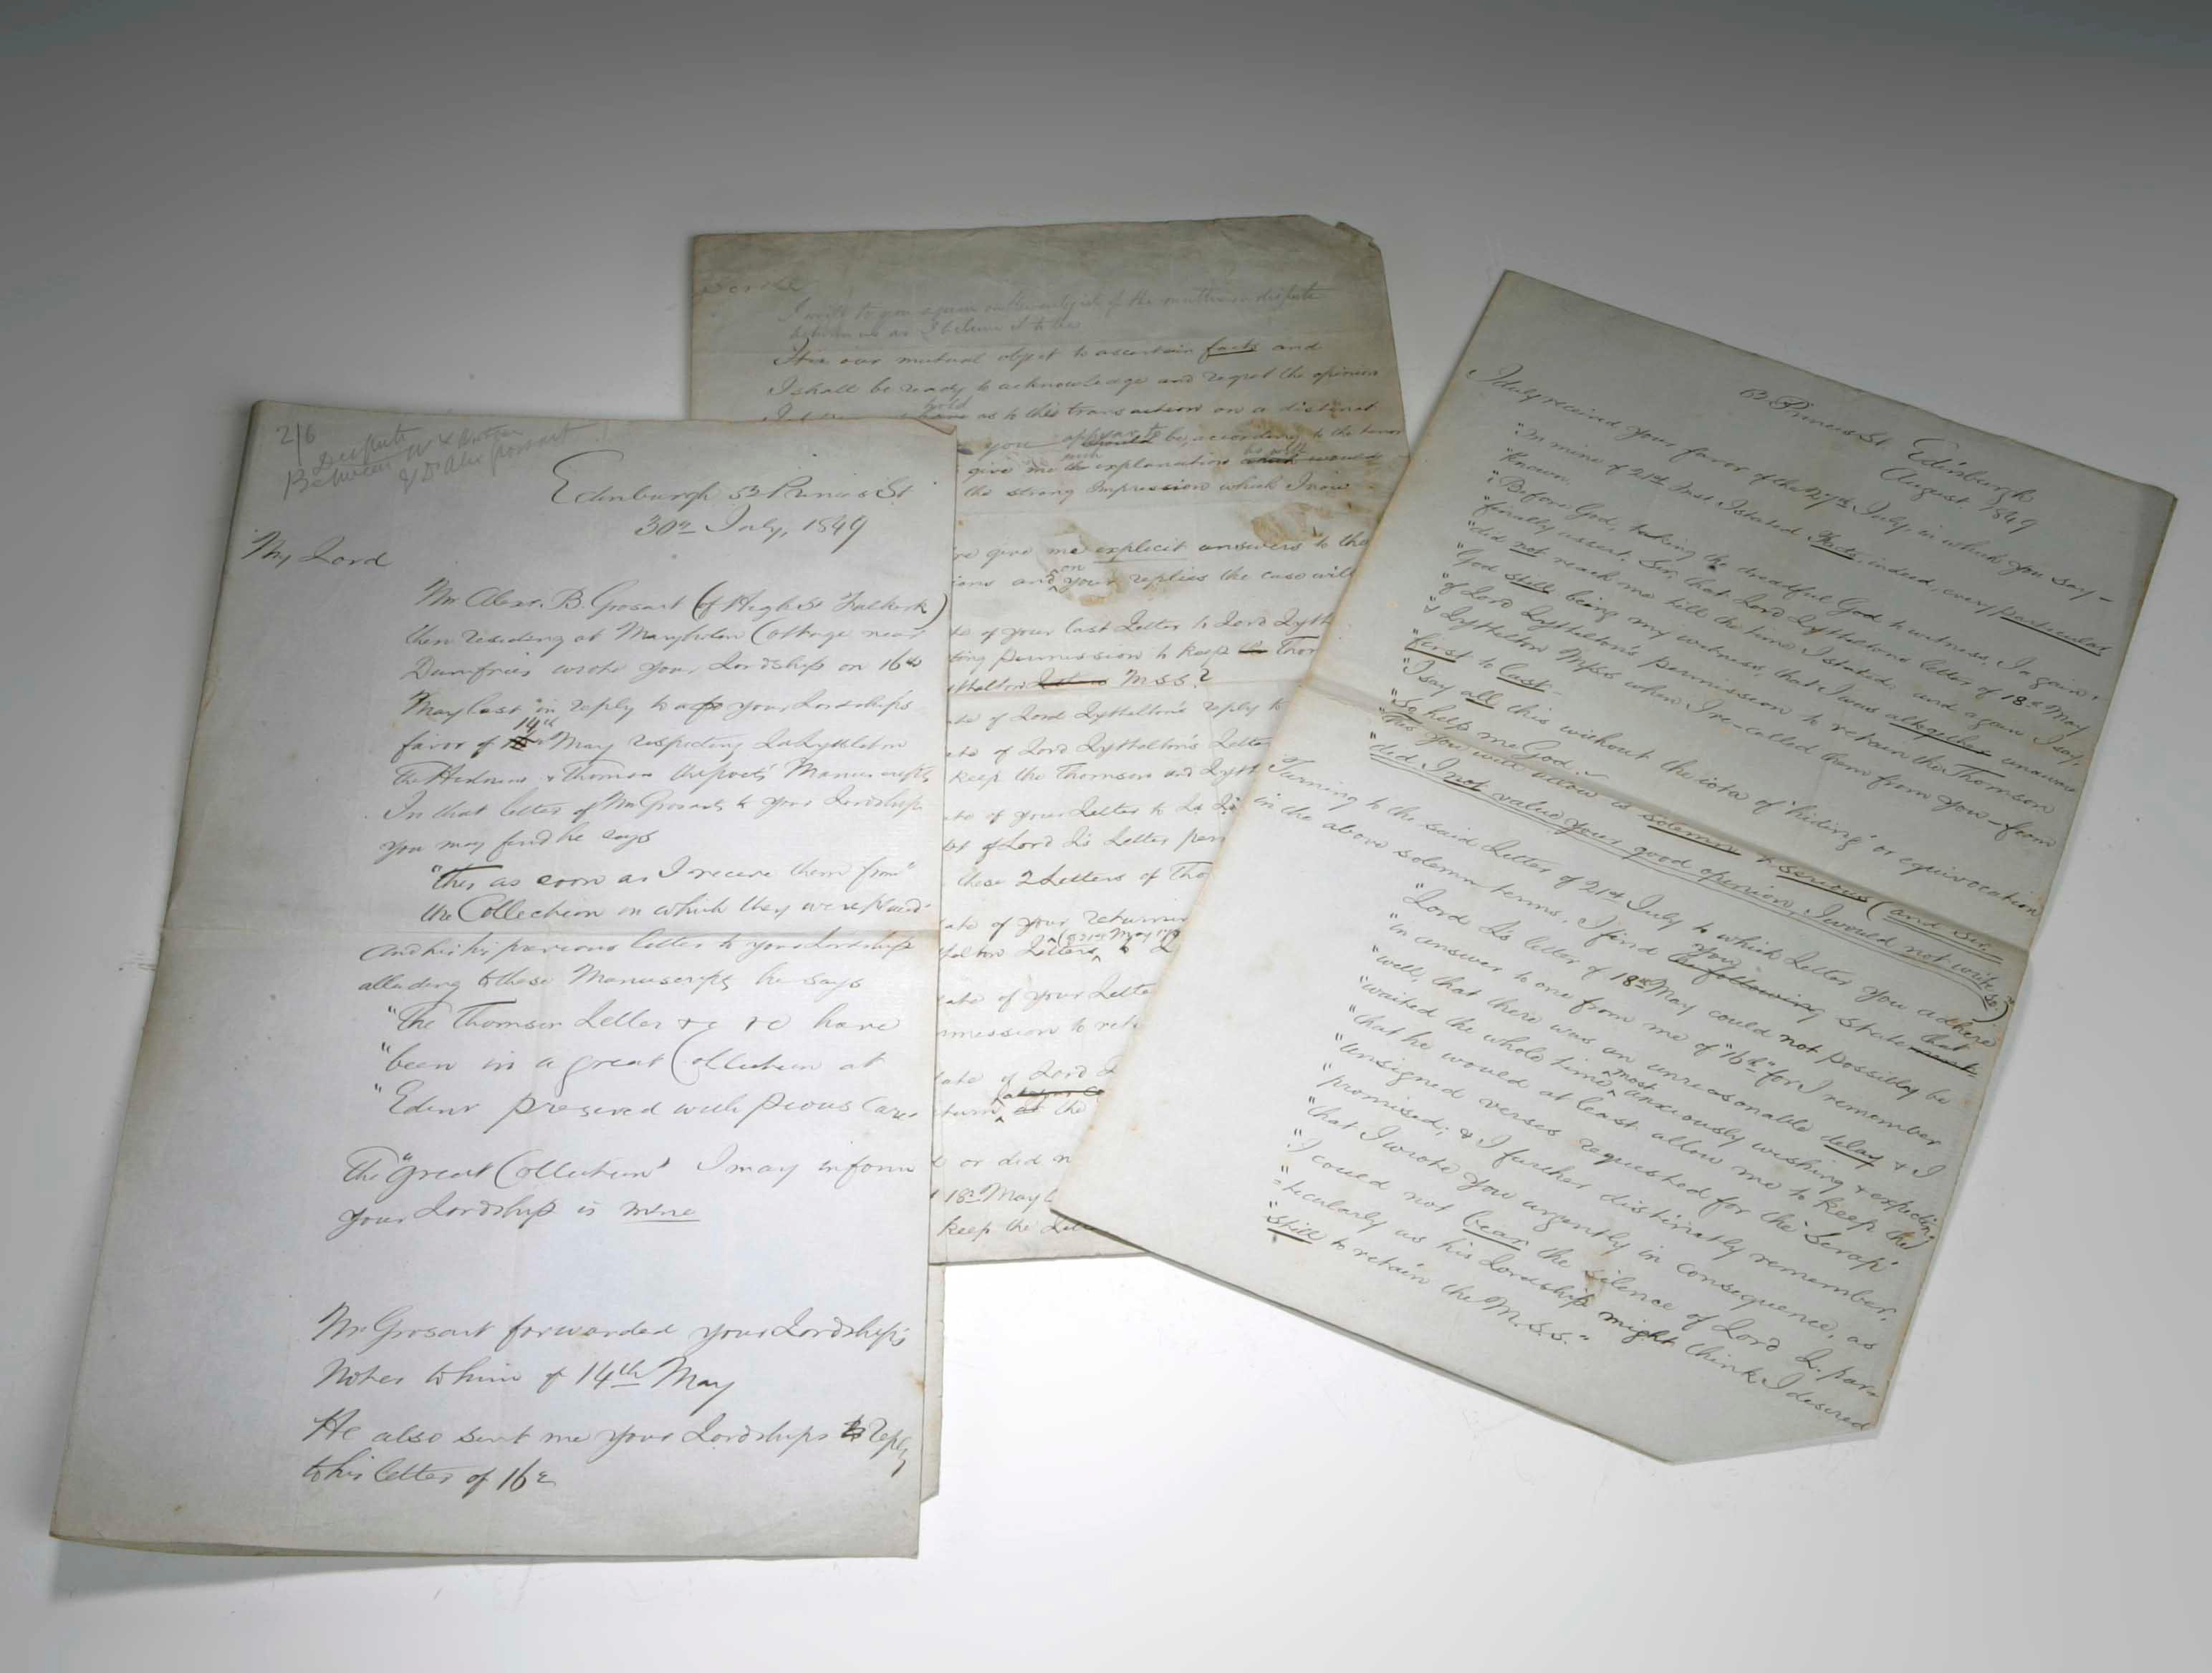 2/6
Dispute
Between W &
& Dr Alex Grosart
Edinburgh 53 Princes St
30th July, 1849
My Lord
Mr Alexr. B. Grosart (of High St Falkirk)
then residing at Cottage near
Dumfries wrote your Lordship on 16th
May last in reply to your Lordship's
14th
favor of May respecting Ld Lyttelton
the & Thomson the poets' Manuscripts
In that letter of Mr Grosart's to your Lordship
you may find he says
"this as soon as I receive them from"
the Collection in which they were placed"
and in his previous letter to your Lordship
alluding to these Manuscripts he says
"The Thomson Letter &c &c have
"been in a great Collection at
"Edinr preserved with pious Care
The "great Collection" I may inform
your Lordship is mine
Mr Grosart forwarded your Lordship's
Notes to him of 14th May
He also sent me your Lordships reply
to his letter of 16th
I write to you again on the subject of the matter in dispute
between us as I believe I
our mutual object to ascertain facts and
I shall be ready to acknowledge and regret the opinion
hold
as to this transaction on a distinct
you appear to be, according to the
such
give me explanation
the strong impression which I now
give me explicit answers to the
on
and your replies the case will
of your last Letter to Lord Lyth
permission to keep the Thom
M.S.S.?
of Lord Lyttelton's reply to
of Lord Lyttelton's Letter
keep the Thomson and Lytt
of your Letter to Ld
of Lord L's Letter per
these 2 Letters of Tho
of your returning
Letters to L
of your Letter
permission to ret
of Lord L
the
or did n
18th May
keep the Lette
53 Princes St Edinburgh
August 1849
I duly received your favor of the 27th July, in which you say—
"In mine of 21st Inst I stated Facts, indeed, every particular
"known.
"Before God, taking the dreadful God to witness, I again &
"finally assert, Sir, that Lord Lyttelton's letter of 18th May
"did not reach me till the time I stated; and again I say,
"God still being my witness, that I was altogether unaware
"of Lord Lyttelton's permission to retain the Thomson
"& Lyttelton M.S.S when I re-called them from you—from
"first to last.—
"I say all this without the iota of 'hiding' or equivocation
"So help me God.—
"This you will allow is solemn & serious (and Sir,
"did I not value your good opinion, I would not write so)"
Turning to the said Letter of 21st July to which Letter you adhere
in the above solemn terms, I find you state that
"Lord L's letter of 18th May could not possibly be
"in answer to one from me of "16th" for I remember
"well, that there was an unreasonable delay & I
"waited the whole time, most anxiously wishing & expecting
"that he would at least allow me to keep the
"unsigned verses requested for the 'Scrap'
"promised; & I further distinctly remember,
"that I wrote you urgently in consequence, as
"I could not bear the silence of Lord L. par-
"ticularly as his Lordship might think I desired
"still to retain the M.S.S."